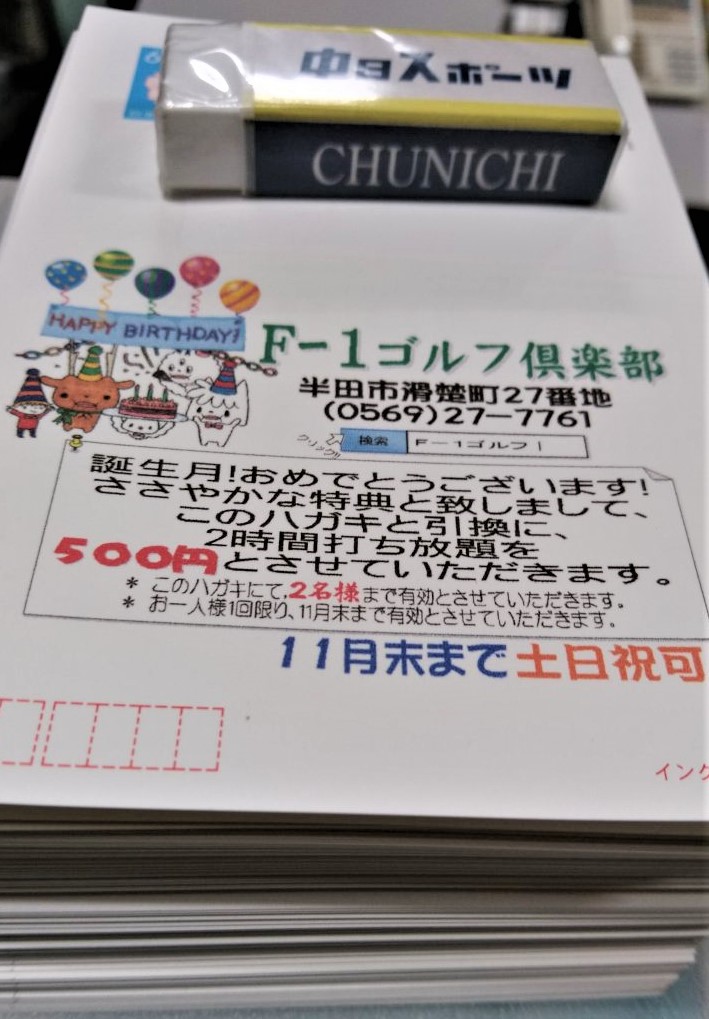 中日スポーツ
CHUNICHI
HAPPY BIRTHDAY!
F-1ゴルフ倶楽部
半田市滑楚町27番地
(0569)27-7761
検索 F-1ゴルフ
誕生月!おめでとうございます!
ささやかな特典と致しまして、
このハガキと引換に、
2時間打ち放題を
500円とさせていただきます。
* このハガキにて,2名様まで有効とさせていただきます。
* お一人様1回限り、11月末まで有効とさせていただきます。
11月末まで土日祝可
インク